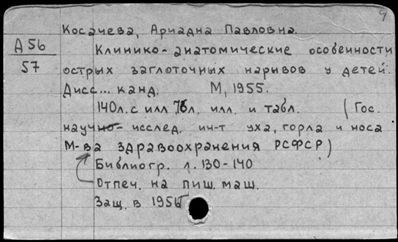 9
Косачева, Ариадна Павловна.
А56
57
Клинико-анатомические особенности
острых заглоточных наривов у детей.
Дисс... канд. М, 1955.
140л. с илл. 76л. илл. и табл. (Гос.
научно-исслед. ин-т уха, горла и носа
М-ва здравоохранения РСФСР)
Библиогр. л. 130-140
Отпеч. на пиш. маш.
Защ. в 1956